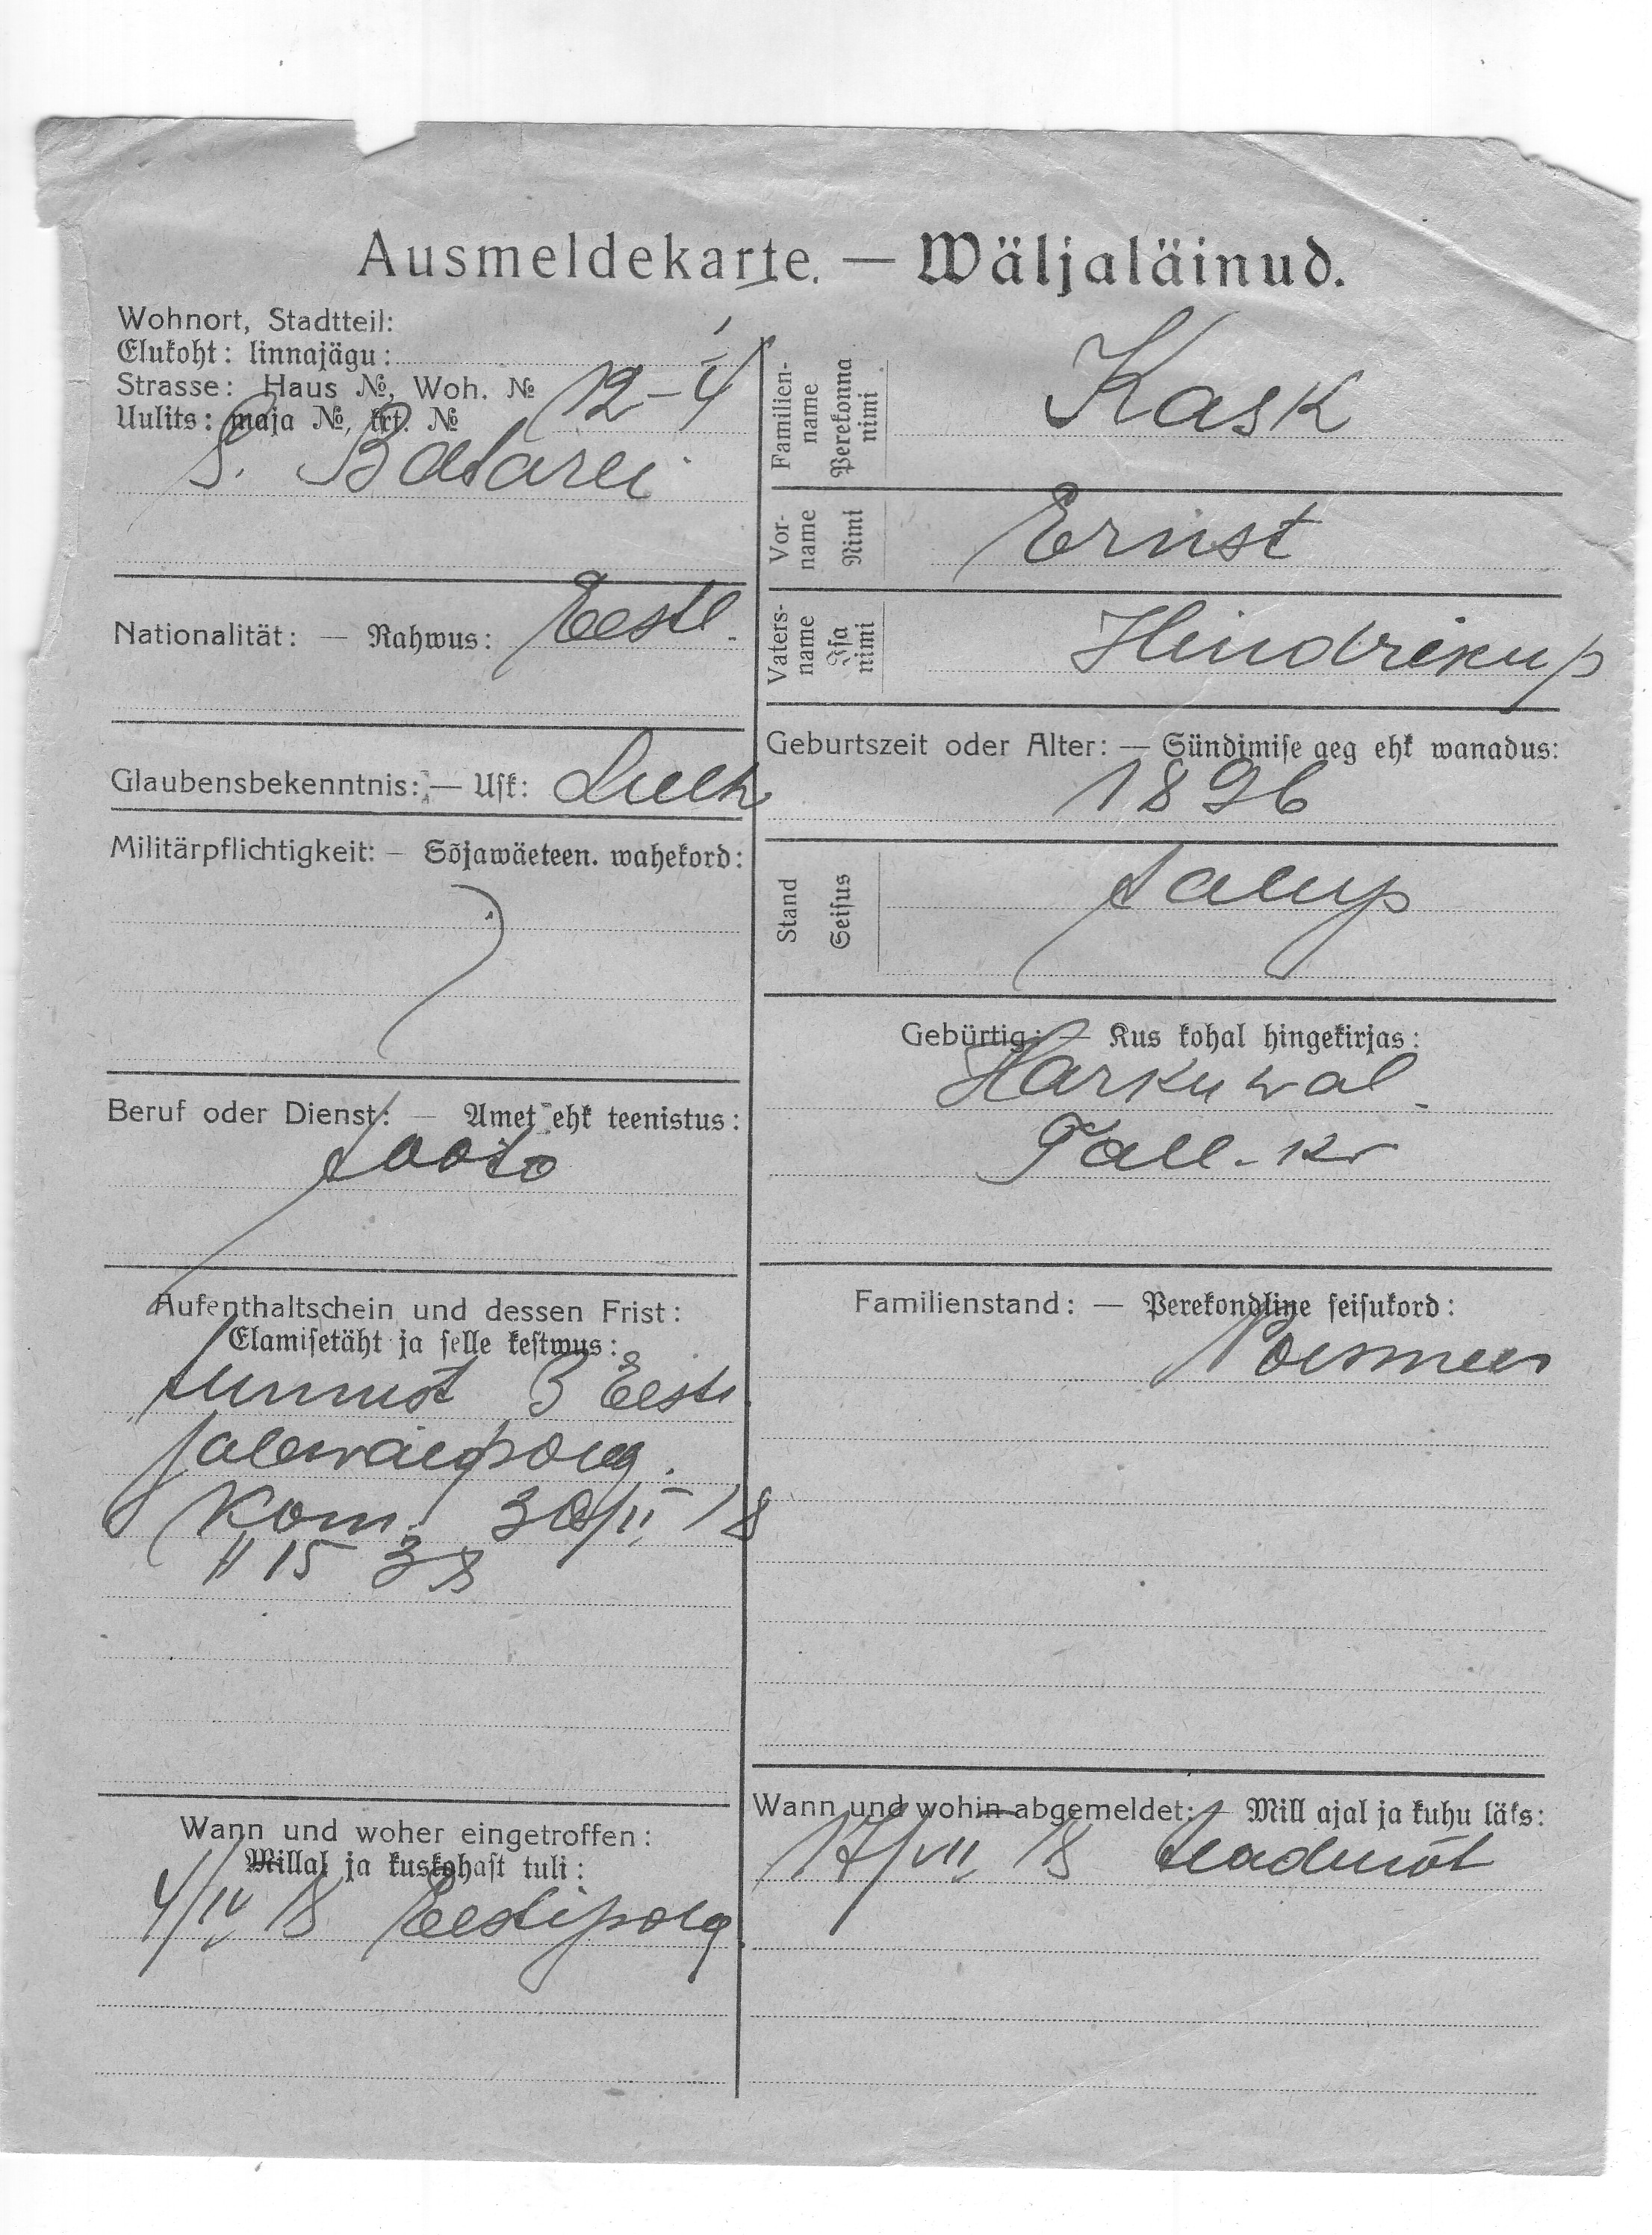 Ausmeldekarte. — Wäljaläinud.
Wohnort, Stadtteil:
Elukoht: linnajägu:
Strasse: Haus №, Woh. № 12-4
Uulits: maja №, krt. №
S. Batarei
Nationalität: — Rahwus: Eestl.
Glaubensbekenntnis: — Usk: Luth
Militärpflichtigkeit: — Sõjawäeteen. wahekord:
Beruf oder Dienst: — Amet ehk teenistus:
Aufenthaltschein und dessen Frist:
Elamisetäht ja selle kestwus:
tunnist 3 Eesti
jalawäepolg.
Kom. 30/II 18
# 15 38
Wann und woher eingetroffen:
Millal ja kuskohast tuli:
4/IV 18 Eestipolg
Familien-
name
Perekonna
nimi
Kask
Vor-
name
Nimi
Ernst
Vaters-
name
Isa
nimi
Hindriku p
Geburtszeit oder Alter: — Sündimise aeg ehk wanadus:
1896
Stand
Seisus
talup
Gebürtig: — Kus kohal hingekirjas:
Harku wal.
Tall. kr
Familienstand: — Perekondline seisukord:
Poismees
Wann und wohin abgemeldet: — Mill ajal ja kuhu läks:
17/VII 18 teadmat